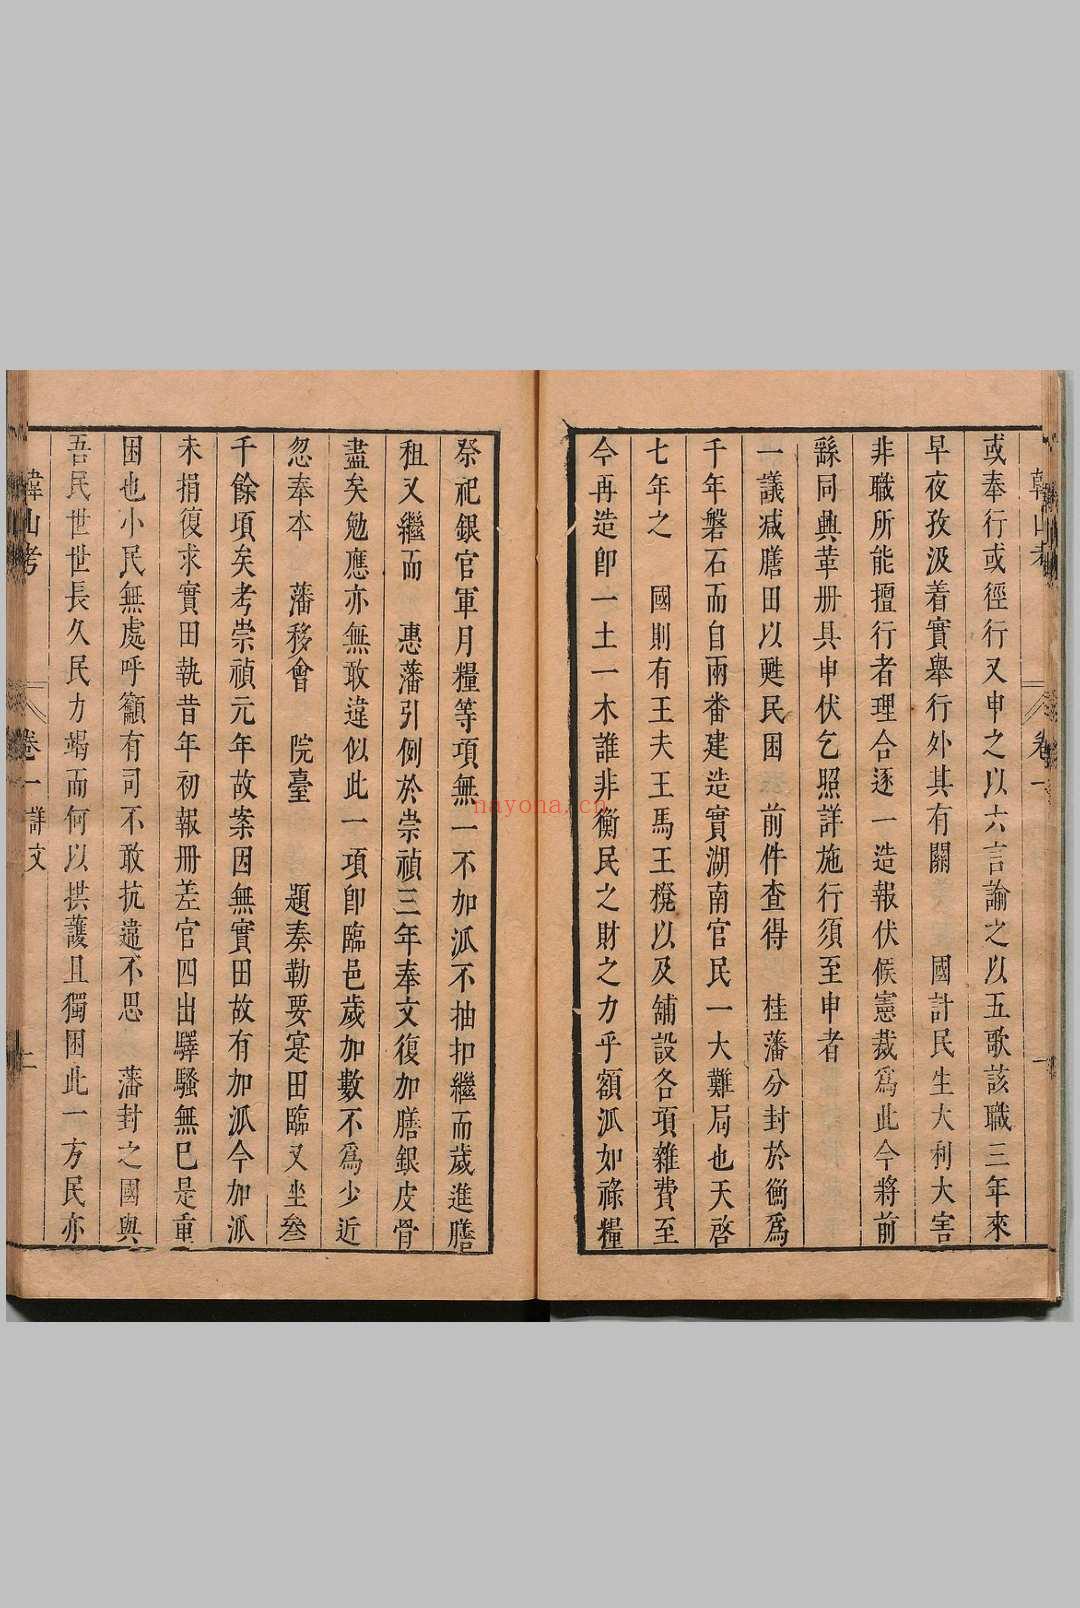 或奉行或徑行又申之以六言諭之以五歌該職三年來
早夜孜汲着實舉行外其有關　國計民生大利大害
非職所能擅行者理合逐一造報伏候憲裁爲此今將前
繇同興革册具申伏乞照詳施行須至申者
一議減膳田以甦民困　前件查得　桂藩分封於衡爲
千年磐石而自兩番建造實湖南官民一大難局也天啓
七年之　國則有王夫王馬王櫈以及舖設各項雜費至
今再造卽一土一木誰非衡民之財之力乎額派如祿糧
祭祀銀官軍月糧等項無一不加派不抽扣繼而歲進膳
租又繼而　惠藩引例於崇禎三年奉文復加膳銀皮骨
盡矣勉應亦無敢違似此一項卽臨邑歲加數不爲少近
忽奉本　藩移會　院臺　題奏勒要寔田臨又坐叄
千餘頃矣考崇禎元年故案因無實田故有加派今加派
未捐復求實田執昔年初報册差官四出驛騷無已是重
困也小民無處呼籲有司不敢抗違不思　藩封之國與
吾民世世長久民力竭而何以拱護且獨困此一方民亦
韓山考　卷一　詳文　二
nayona.cn